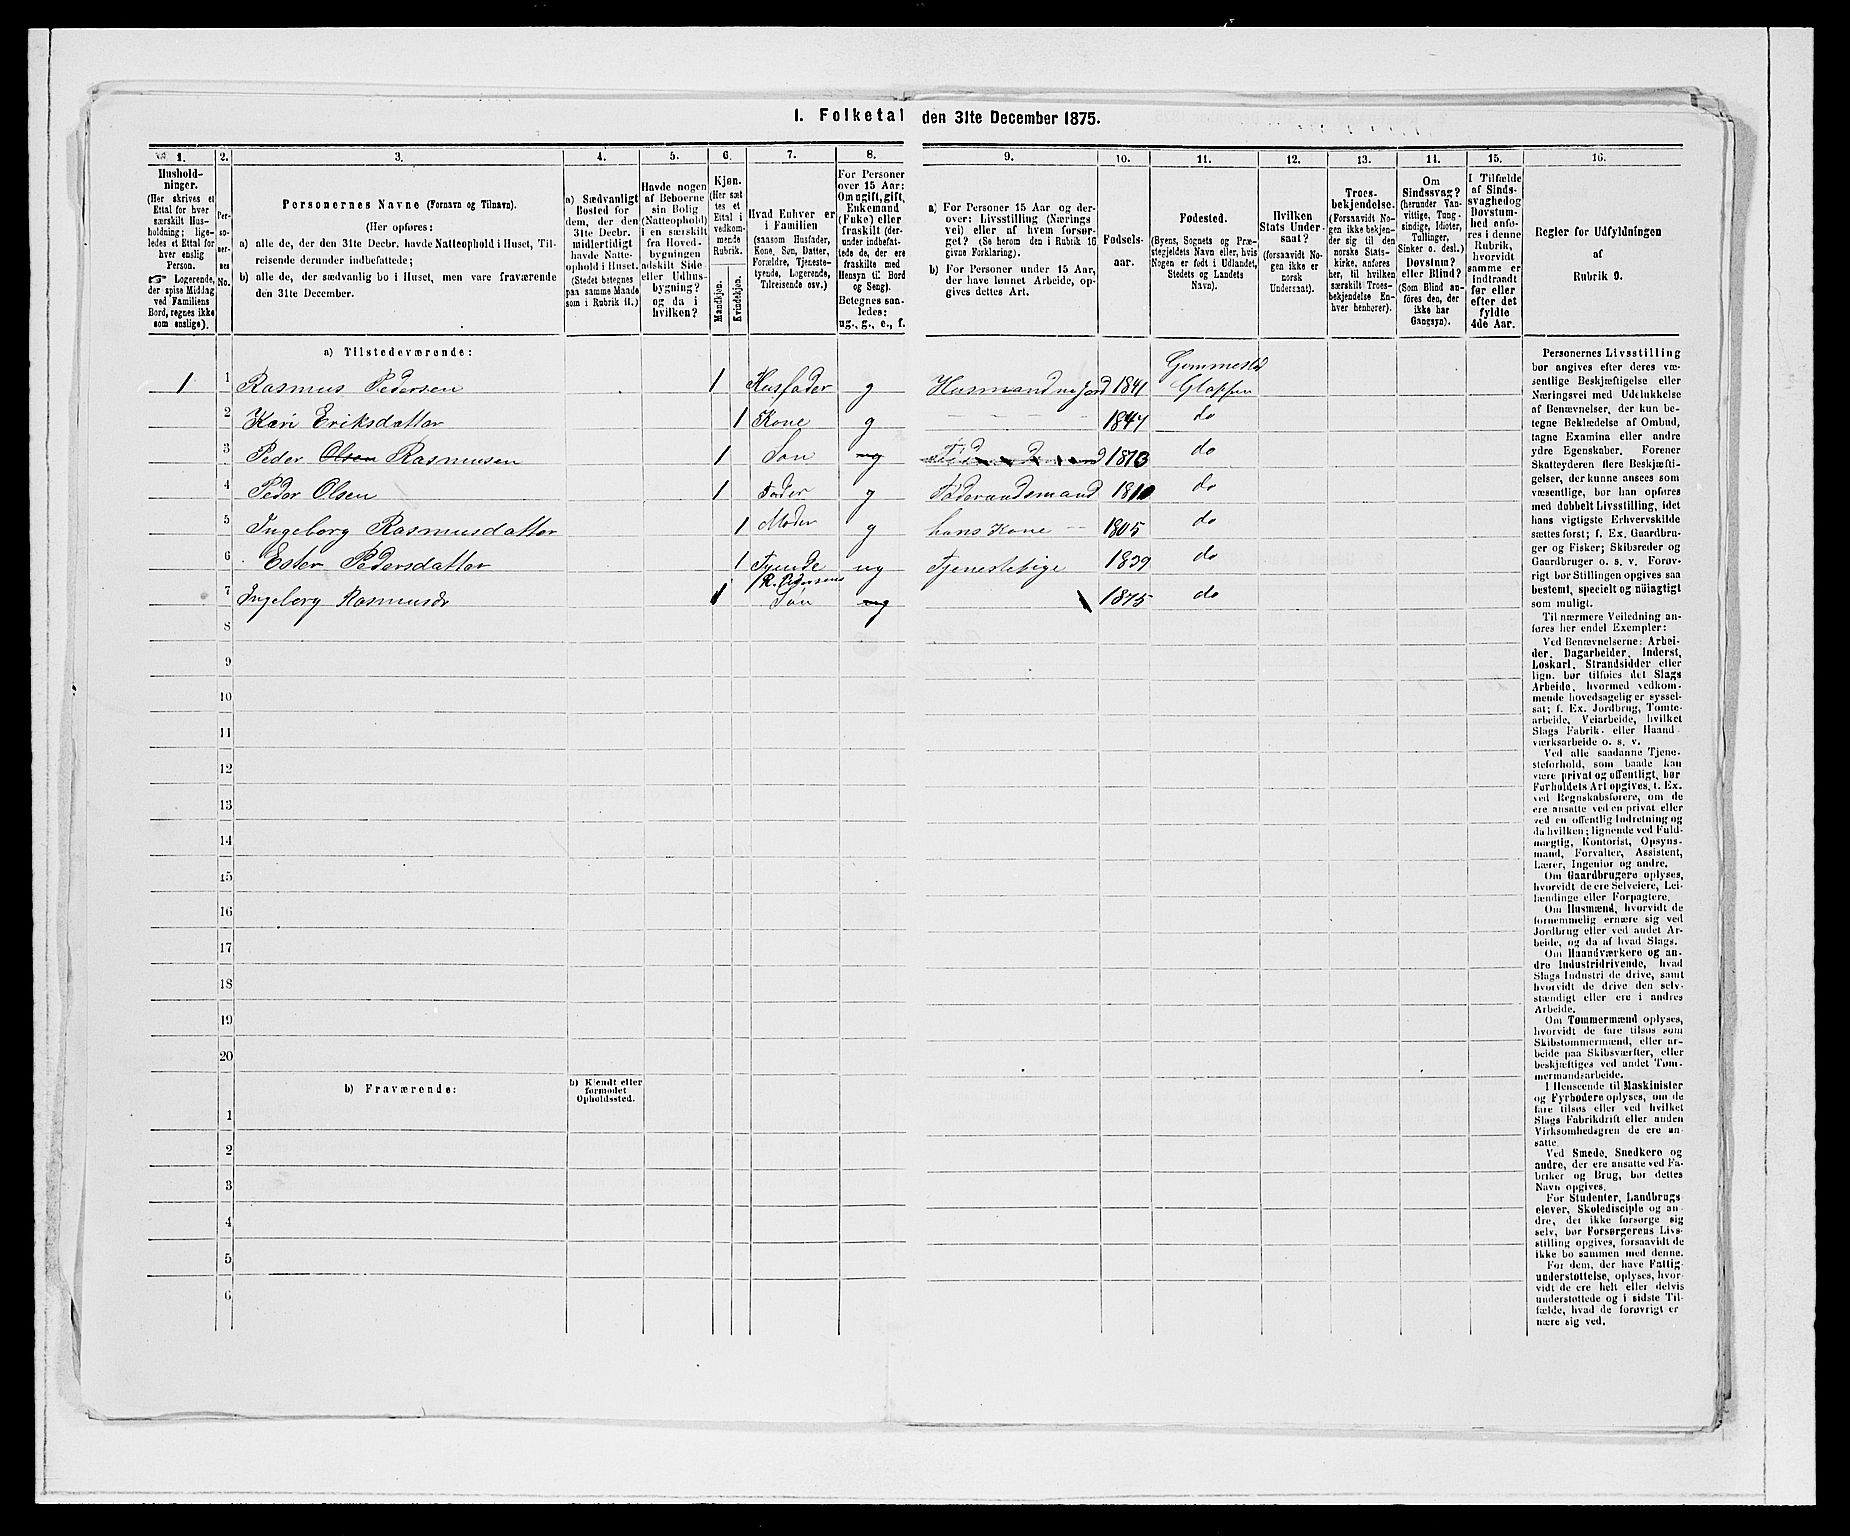 I. Folketal den 31te December 1875.
1. 2. 3. 4. 5. 6. 7. 8. 9. 10. 11. 12. 13. 14. 15. 16.
Husholdninger.
(Her skrives et
Ettal for hver
særskilt Husholdning;
ligeledes et Ettal for
hver enslig
Person.
☞ Logerende,
der spise Middag
ved Familiens
Bord, regnes ikke
som enslige).
Personernes No.
Personernes Navne (Fornavn og Tilnavn).
(Her opføres:
a) alle de, der den 31te Decbr. havde Natteophold i Huset, Tilreisende derunder indbefattede;
b) alle de, der sædvanlig bo i Huset, men vare fraværende
den 31te December.
a) Sædvanligt
Bosted for
dem, der den
31te Decbr.
midlertidigt
havde Natteophold i Huset.
(Stedet betegnes
paa samme Maade
som i Rubrik 11.)
Havde nogen
af Beboerne
sin Bolig
(Natteophold)
i en særskilt
fra Hovedbygningen
adskilt Side
eller Udhusbygning?
og da i
hvilken?
Kjøn.
(Her sættes et
Ettal i
vedkommende
Rubrik.
Mandkjøn.
Kvindekjøn.
Hvad Enhver er
i Familien
(saasom Husfader,
Kone, Søn, Datter,
Forældre, Tjenestetyende, Logerende,
Tilreisende osv.)
For Personer
over 15 Aar:
Om ugift, gift,
Enkemand
(Enke) eller
fraskilt (derunder indbefattede de, der ere
fraskilte med
Hensyn til Bord
og Seng).
Betegnes saaledes:
ug., g., e., f.
a) For Personer 15 Aar og derover: Livsstilling (Næringsvei) eller af hvem forsørget? (Se herom den i Rubrik 16
givne Forklaring).
b) For Personer under 15 Aar,
der have lønnet Arbeide, opgives dettes Art.
Fødselsaar.
Fødested.
(Byens, Sognets og Præstegjeldets Navn eller, hvis
Nogen er født i Udlandet,
Stedets og Landets
Navn).
Hvilken
Stats Undersaat?
(forsaavidt Nogen ikke er
norsk
Undersaat).
Troesbekjendelse.
(Forsaavidt Nogen ikke bekjender sig til den
norske Statskirke, anføres
her, til hvilken
særskilt Troesbekjendelse Enhver henhører).
Om
Sindssvag?
(herunder Vanvittige, Tungsindige, Idioter,
Tullinger,
Sinker o. desl.)
Døvstum?
eller Blind?
(Som Blind anføres den, der
ikke har
Gangsyn).
I Tilfælde
af Sindssvaghed og
Døvstumhed anføres i denne
Rubrik,
hvorvidt
samme er
indtraadt
før eller
efter det
fyldte
4de Aar.
Regler for Udfyldningen
af
Rubrik 9.
a) Tilstedeværende:
1 1 Rasmus Pedersen 1 Husfader g Husmand m jord 1841 Gloppen
2 Kari Eriksdatter 1 Kone g 1847 do
3 Peder Olsen Rasmusen 1 Søn ug 1873 do
4 Peder Olsen 1 Fader g Føderaadsmand 1810 do
5 Ingeborg Rasmusdatter 1 Moder g hans Kone 1805 do
6 Ester Pedersdatter 1 Tyende ug Tjenestepige 1839 do
7 Ingeborg Rasmusdr 1 R. Pedersens Søn ug 1875 do
8
9
10
11
12
13
14
15
16
17
18
19
20
b) Fraværende:
b) Kjendt eller
formodet
Opholdssted.
1
2
3
4
5
6
Personernes Livsstilling
bør angives efter deres væsentlige Beskjæftigelse eller
Næringsvei med Udelukkelse
af Benævnelser, der kun betegne Beklædelse af Ombud,
tagne Examina eller andre
ydre Egenskaber. Forener
Skatteyderen flere Beskjæftigelser, der kunne ansees som
væsentlige, bør han opføres
med dobbelt Livsstilling, idet
hans vigtigste Erhvervskilde
sættes først; f. Ex. Gaardbruger og Fisker; Skibsreder og
Gaardbruger o. s. v. Forøvrigt bør Stillingen opgives saa
bestemt, specielt og nøiagtigt
som muligt.
Til nærmere Veiledning anføres her endel Exempler:
Ved Benævnelserne: Arbeider, Dagarbeider, Inderst,
Løskarl, Strandsidder eller
lign. bør tilføies det Slags
Arbeide, hvormed vedkommende hovedsagelig er sysselsat; f. Ex. Jordbrug, Tomtearbeide, Veiarbeide, hvilket
Slags Fabrik- eller Haandværksarbeide o. s. v.
Ved alle saadanne Tjenesteforhold, som baade kan
være privat og offentligt, bør
Forholdets Art opgives, f. Ex.
ved Regnskabsførere, om de
ere ansatte ved en privat eller
ved en offentlig Indretning og
da hvilken; lignende ved Fuldmægtig, Kontorist, Opsynsmand, Forvalter, Assistent,
Lærer, Ingeniør og andre.
Om Gaardbrugere oplyses,
hvorvidt de ere Selveiere, Leilændinge eller Forpagtere.
Om Husmænd, hvorvidt de
fornemmelig ernære sig ved
Jordbrug eller ved andet Arbeide, og da af hvad Slags.
Om Haandværkere og andre Industridrivende, hvad
Slags Industri de drive, samt
hvorvidt de drive den selvstændigt eller ere i andres
Arbeide.
Om Tømmermænd oplyses,
hvorvidt de fare tilsøs som
Skibstømmermænd, eller arbeide paa Skibsværfter, eller
beskjæftiges ved andet Tømmermandsarbeide.
I Henseende til Maskinister
og Fyrbødere oplyses, om de
fare tilsøs eller ved hvilket
Slags Fabrikdrift eller anden
Virksomhedsgren de ere ansatte.
Ved Smede, Snedkere og
andre, der ere ansatte ved Fabriker og Brug, bør dettes
Navn opgives.
For Studenter, Landbrugselever, Skoledisciple og andre, der ikke forsørge sig
selv, bør Forsørgerens Livsstilling opgives, forsaavidt de
ikke bo sammen med denne.
For dem, der have Fattigunderstøttelse, oplyses, hvorvidt de ere helt eller delvis
understøttede og i sidste Tilfælde, hvad de forøvrigt ernære sig ved.